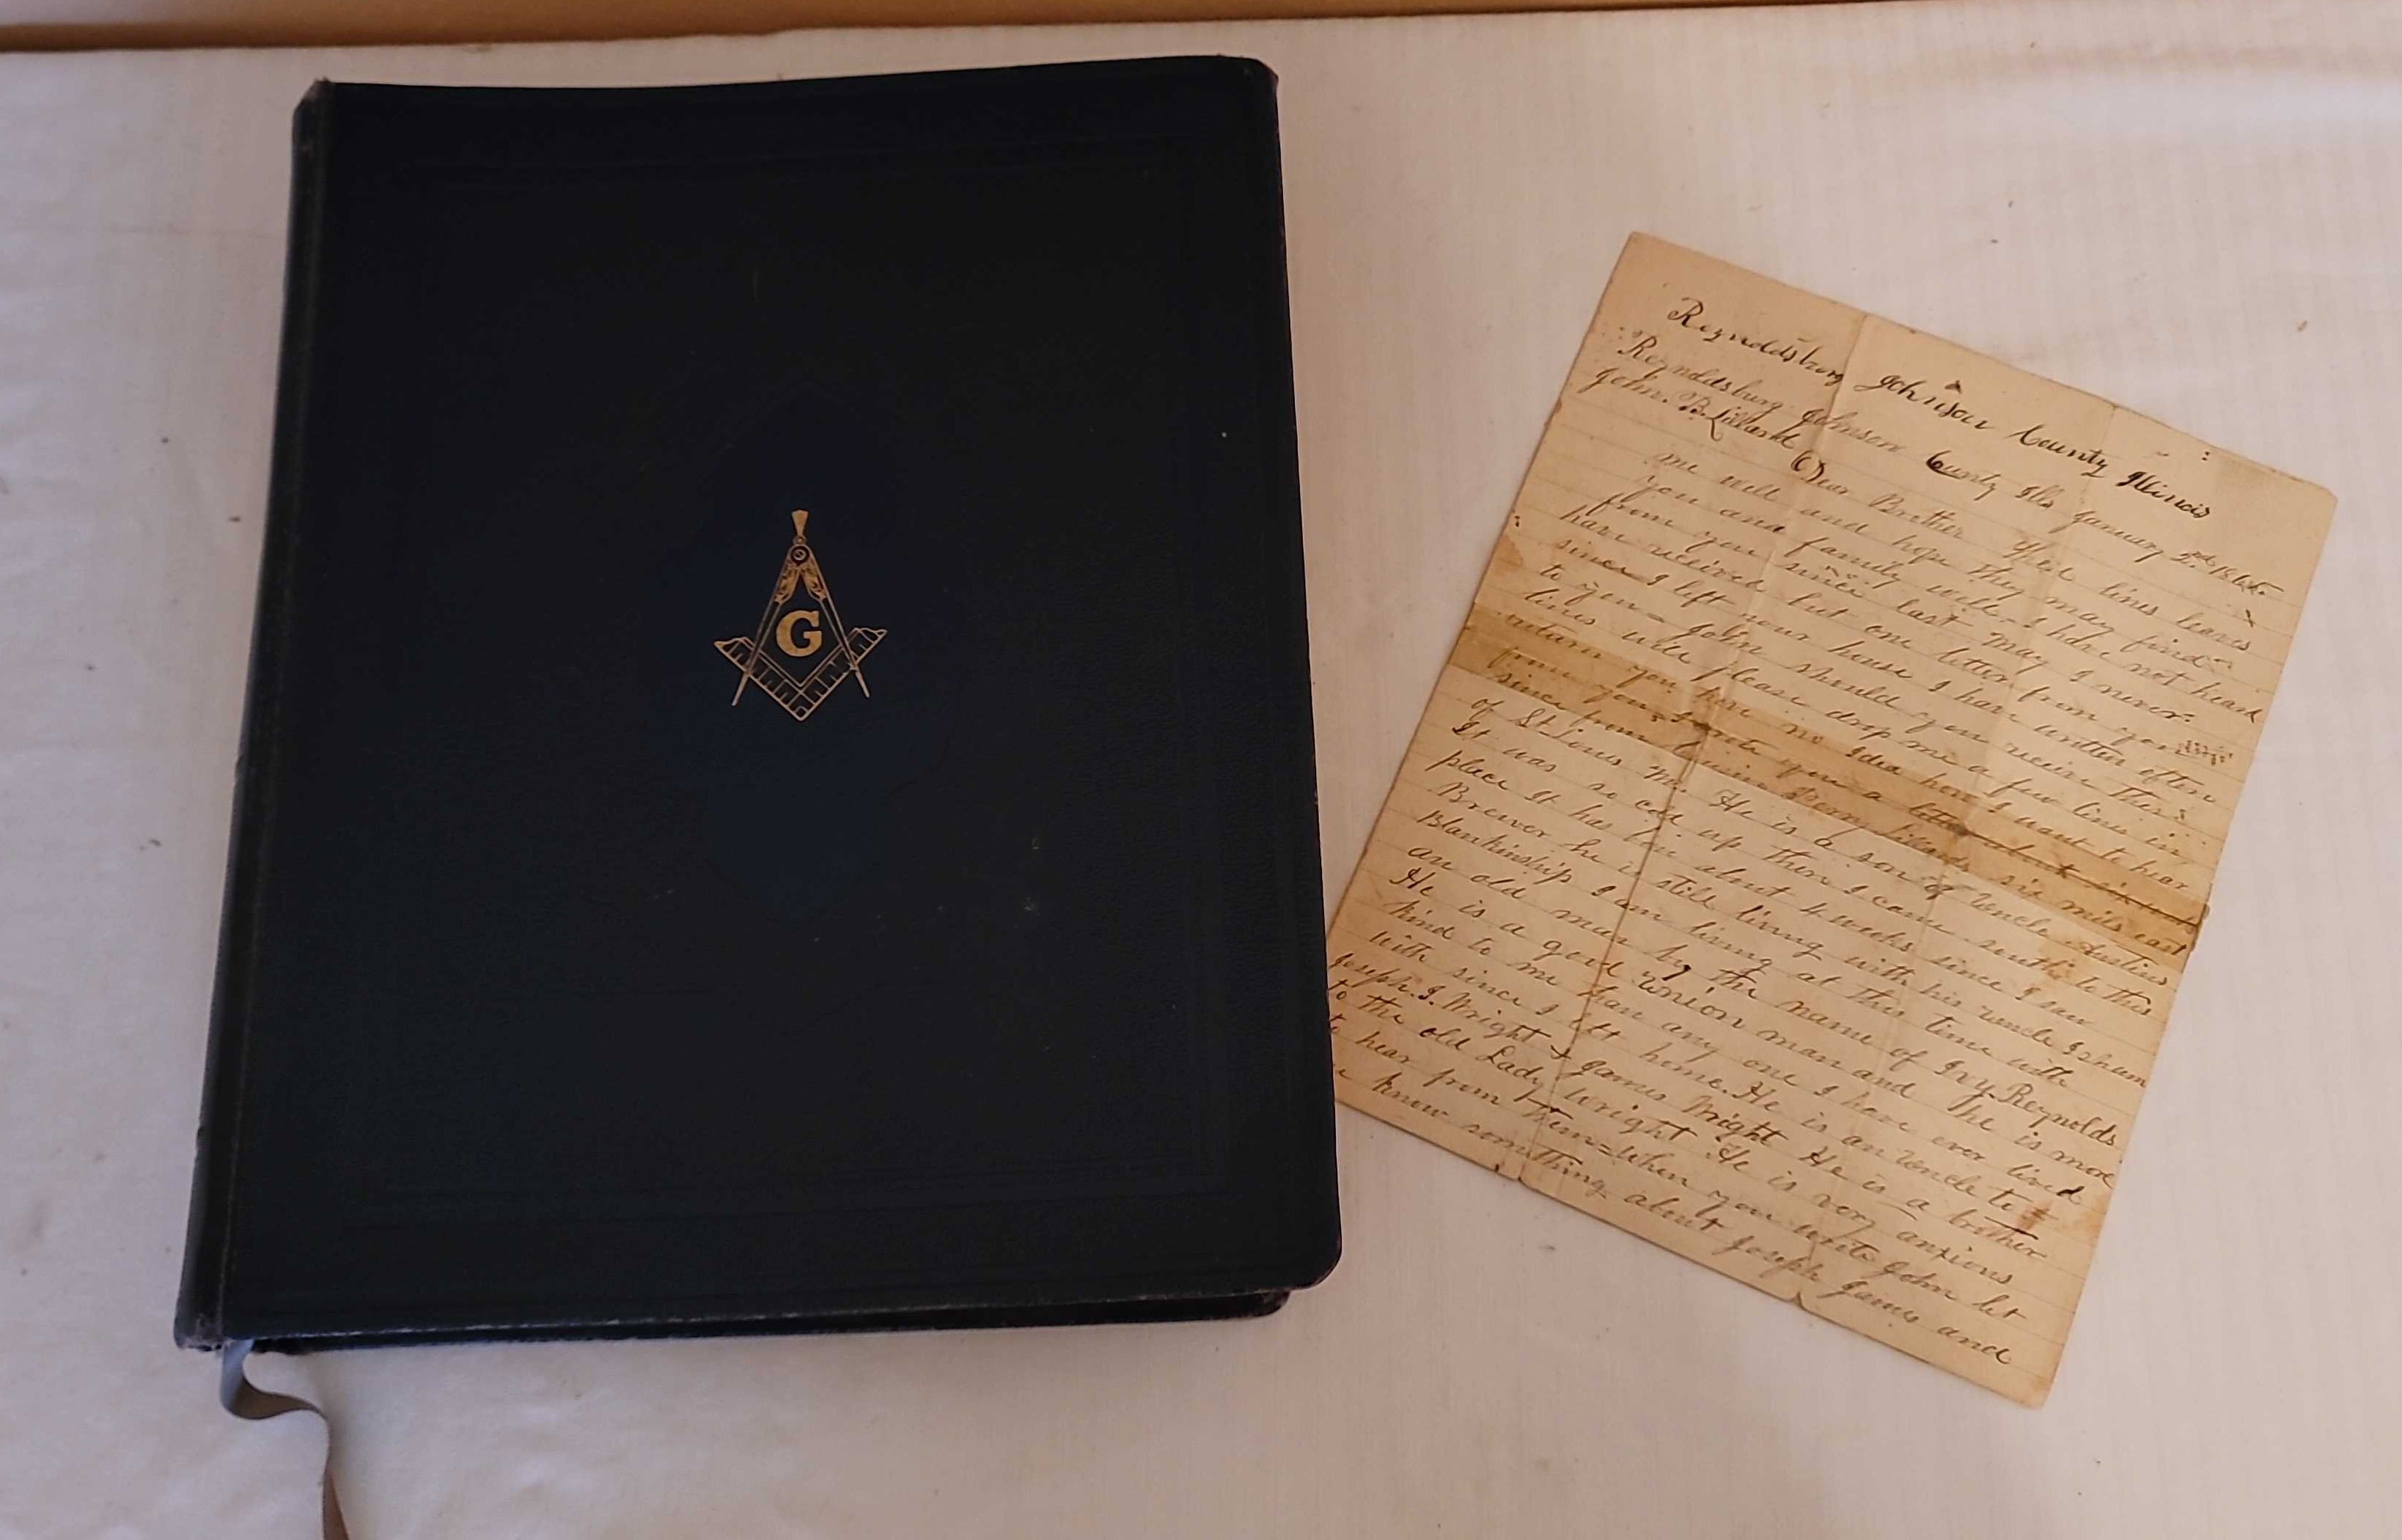 G
Reynoldsburg Johnson County Illinois
Reynoldsburg Johnson County Ills January 2nd
John. B. Lillard
Dear Brother These lines leaves
me well and hope they may find
you and family well - I have not heard
from you since last May I never
have received but one letter from you
since I left your house I have written often
to you = John should you receive these
lines will please drop me a few lines in
return you have no Idea how I want to hear
from you I wrote you a letter about six weeks
since from Perry Lillards six miles east
of St Louis Mo. He is a son of Uncle Austins
It was so cold up there I came south to this
place It has been about 4 weeks since I saw
Brewer he is still living with his uncle Isham
Blankinship I am living at this time with
an old man by the name of Ivy Reynolds
He is a good Union man and he is more
kind to me than any one I have ever lived
with since I left home. He is an Uncle to =
Joseph. J. Wright & James Wright He is a brother
to the old Lady Wright He is very anxious
to hear from them = when you write John let
me know something about Joseph James and